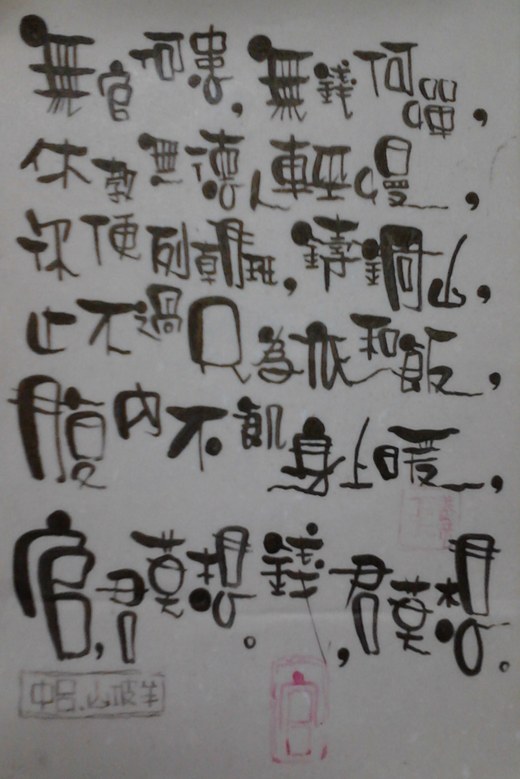 無官何患,無錢何憚,
休教無德人輕慢,
你便列朝班,鑄銅山,
止不過只為衣和飯,
腹內不飢身上暖,
官,君莫想。錢,君莫想。
中呂.山坡羊